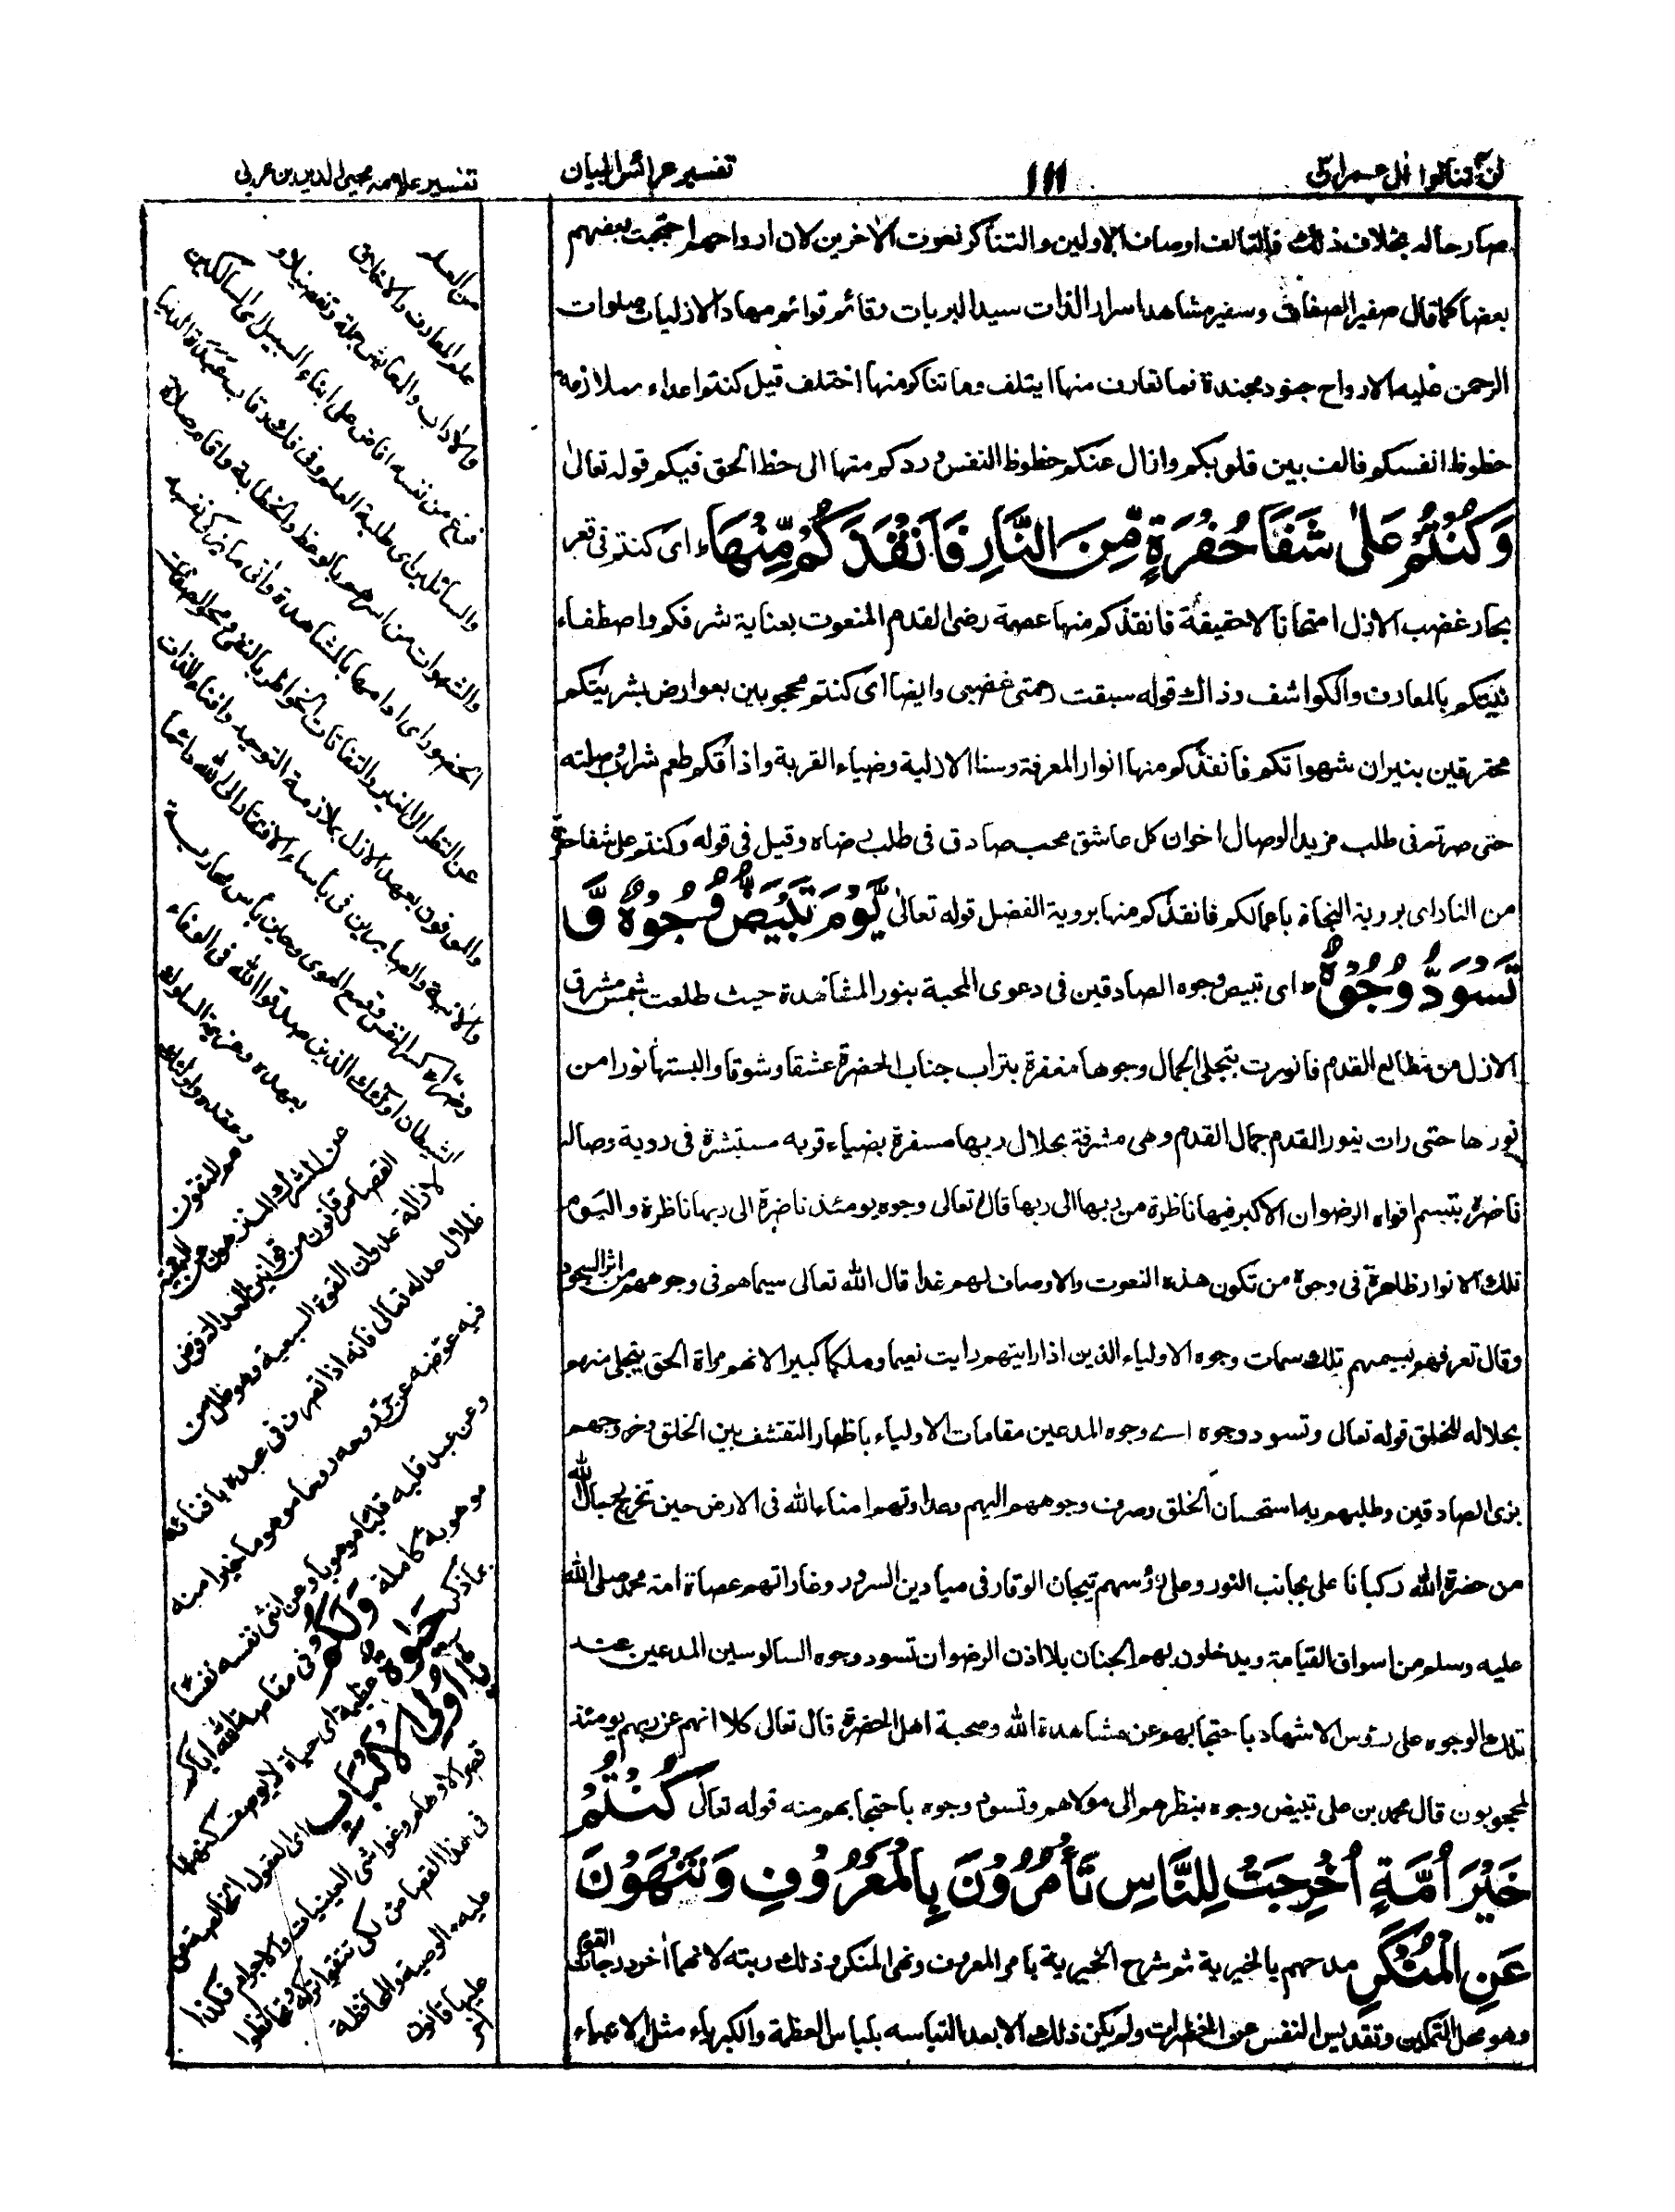 لن تنالوا ال عمران
١١١
تفسير عرائس البيان
تفسير علامه محيى الدين بن عربى
صار حاله بخلاف ذلك فالتالف اوصاف الاولين والتناكر نعوت الاخرين لان ارواحهم احتجبت بعضهم
بعضا كما قال صفير الصفاف وسفير مشاهد اسرار الذات سيد البريات وقائم قوائم مهاد الازليات صلوات
الرحمن عليه الارواح جنود مجندة فما تعارف منها ايتلف وما تناكر منها اختلف قيل كنتم اعداء بملازمة
حظوظ انفسكم فالف بين قلوبكم وازال عنكم حظوظ النفس وردكم منها الى حظ الحق فيكم قوله تعالى
وَكُنْتُمْ عَلٰى شَفَا حُفْرَةٍ مِّنَ النَّارِ فَاَنْقَذَكُمْ مِّنْهَا ط اى كنتم فى قعر
بحار غضب الازل امتحانا لا حقيقة فانقذكم منها عصمة رضى القدم المنعوت بعناية شرفكم واصطفاء
نيتكم بالمعارف والكواشف وذاك قوله سبقت رحمتى غضبى وايضا اى كنتم محجوبين بعوارض بشريتكم
محترقين بنيران شهواتكم فانقذكم منها انوار المعرفة وسنا الازلية وضياء القربة واذاقكم طعم شراب وصلته
حتى صرتم فى طلب مزيد الوصال اخوان كل عاشق محب صادق فى طلب رضاه وقيل فى قوله وكنتم على شفا حفرة
من النار اى بروية النجاة باعمالكم فانقذكم منها بروية الفضل قوله تعالى يَّوْمَ تَبْيَضُّ وُجُوْهٌ وَّ
تَسْوَدُّ وُجُوْهٌ ج اى تبيض وجوه الصادقين فى دعوى المحبة بنور المشاهدة حيث طلعت شمس مشرق
الازل من مطالع القدم فانورت بتجلى الجمال وجوها مغفرة بتراب جناب الحضرة عشقا وشوقا والبستها نورا من
نورها حتى رات بنور القدم جمال القدم وهى مشرقة بجلال ربها مسفرة بضياء قربه مستبشرة فى روية وصاله
ناضرة بتبسم افواه الرضوان الاكبر فيها ناظرة من ربها الى ربها قال تعالى وجوه يومئذ ناضرة الى ربها ناظرة واليوم
تلك الانوار ظاهرة فى وجوه من تكون هذه النعوت والاوصاف لهم غدا قال الله تعالى سيماهم فى وجوههم من اثر السجود
وقال تعرفهم بسيمهم تلك سمات وجوه الاولياء الذين اذا رايتهم رايت نعيما وملكا كبيرا لانهم مراة الحق يتجلى منهم
بجلاله للخلق قوله تعالى وتسود وجوه اے وجوه المدعين مقامات الاولياء باظهار التقشف بين الخلق وخروجهم
بزى الصادقين وطلبهم بها استحسان الخلق وصرف وجوههم اليهم وعداوتهم امناء الله فى الارض حين تخرج رجال الله
من حضرة الله ركبانا على نجائب النور وعلى رؤسهم تيجان الوقار فى ميادين السرور وغاراتهم عصاة امة محمد صلى الله
عليه وسلم من اسواق القيامة ويدخلون بهم الجنان بلا اذن الرضوان تسود وجوه السالوسين المدعين عند
تلك الوجوه على رؤس الاشهاد باحتجابهم عن مشاهدة الله وصحبة اهل الحضرة قال تعالى كلا انهم عن ربهم يومئذ
لمحجوبون قال محمد بن على تبيض وجوه بنظرهم الى مولاهم وتسود وجوه باحتجابهم منه قوله تعالى كُنْتُمْ
خَيْرَ اُمَّةٍ اُخْرِجَتْ لِلنَّاسِ تَأْمُرُوْنَ بِالْمَعْرُوْفِ وَتَنْهَوْنَ
عَنِ الْمُنْكَرِ مدحهم بالخيرية ثم شرح الخيرية بامر المعروف ونهى المنكر وذلك رتبة لانهما اخر درجات القوم
وهو محل التمكين وتقديس النفس عن الخطرات ولم يكن ذلك الا بعد التباسه بلباس العظمة والكبرياء مثل الانبياء
من العلم
علم المعارف والاخلاق
والاداب والمعايش جملة وتفصيلا و
فرغ من نفسه افاض على ابناء السبيل اى السالكين
والسائلين اى طلبة العلم وفى فك رقاب عبدة الدنيا
والشهوات من اسرهم بالوعظ والخطابة واقام صلاة
الحضور اى ادامها بالمشاهدة واتى ما يزكى نفسه
عن النظر الى الغير والتفاتات الخواطر بالنفى ومحو الصفات
والموفون بعهد الازل بملازمة التوحيد وافناء الذات
والانية والصابرين فى بأساء الافتقار الى الله دائما
وضراء كسر النفس وقمع الهوى وحين بأس محاربة
الشيطان اولئك الذين صدقوا الله فى الوفاء
بعهده وعزيمة السلوك
وعقده واولئك
هم المتقون
عن الشرك المنزهون عن البقية
القصاص قانون من قوانين العدالة فرض
لازالة عدوان القوة السبعية وهو ظل من
ظلال عدله تعالى فانه اذا تصرف فى عبده بافنائه
فيه عوضه عن حر روحه روحا موهوبا خيرا منه
وعن عبد قلبه قلبا موهوبا وعن انثى نفسه نفسا
موهوبة كاملة وَلَكُمْ فى مقاصة الله اياكم
بما ذكر حَيٰوةٌ عظيمة اى حياة لا يوصف كنهها
يَا اُولِى الْاَلْبَابِ اى العقول الخالصة عن
قشر الاوهام وغواشى التعينات والاجرام فكذا
فى هذا القصاص لكى تتقوا تركه وتحافظوا
عليه والوصية والمحافظة
عليها قانون
اخر